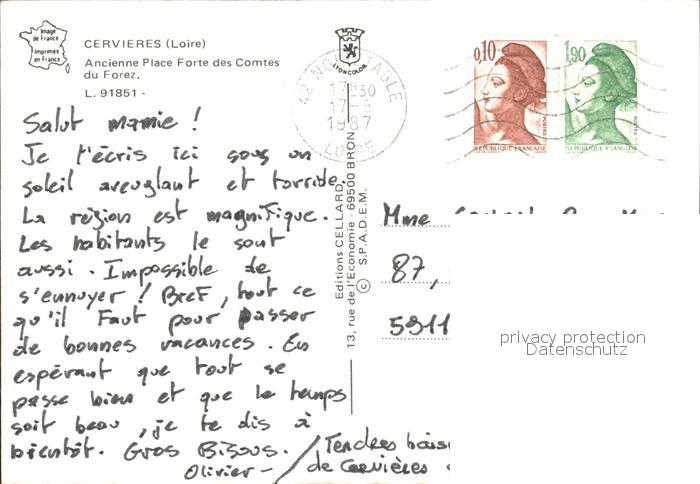 Image de France
Imprimée en France
CERVIERES (Loire)
Ancienne Place Forte des Comtes
du Forez.
L. 91851 -
Salut mamie !
Je t'écris ici sous un
soleil aveuglant et torride.
La région est magnifique.
Les habitants le sont
aussi. Impossible de
s'ennuyer ! Bref, tout ce
qu'il faut pour passer
de bonnes vacances. En
espérant que tout se
passe bien et que le temps
soit beau, je te dis à
bientôt. Gros Bisous.
Olivier -
Tendres
de Cervières
LYONCOLOR
Editions CELLARD
13, rue de l'Economie - 69500 BRON
© S.P.A.D.E.M.
42 ABLE
17-8
1987
LOIRE
0,10
POSTES
REPUBLIQUE FRANÇAISE
1,90
POSTES
REPUBLIQUE FRANÇAISE
Mme
87,
5911
privacy protection
Datenschutz